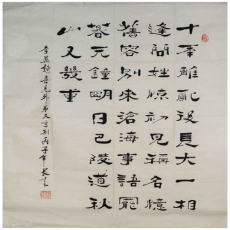 十年離亂後長大一相
逢問姓驚初見稱名憶
舊容別來滄海事語罷
暮天鐘明日巴陵道秋
山又幾重
李益詩喜見外弟又言別丙子年